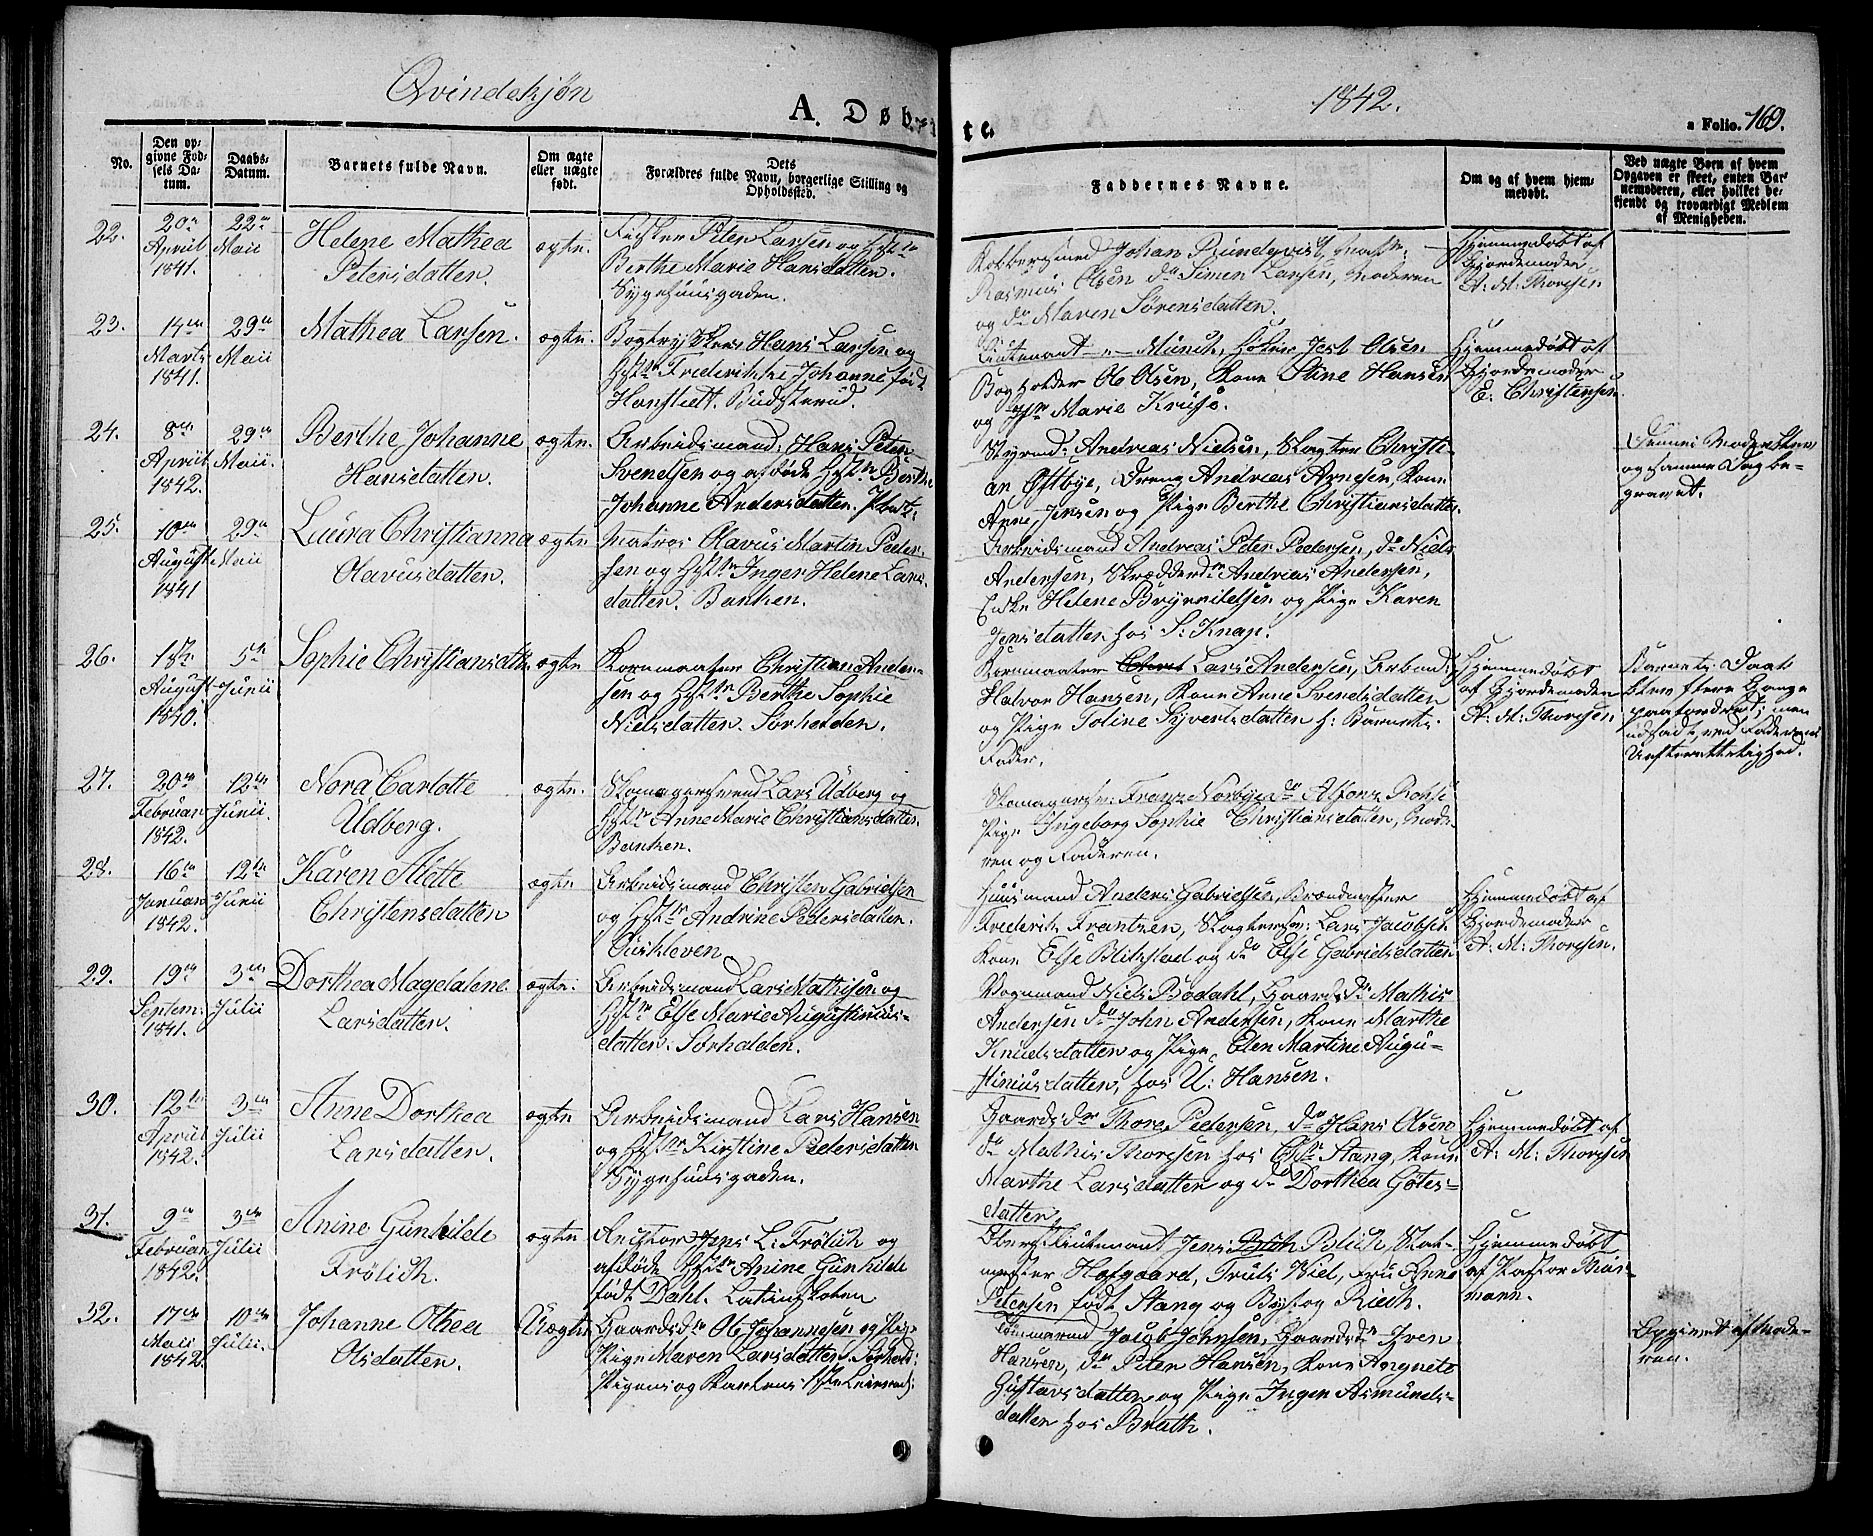 Qvindekjøn
A. Døbte.
1842.
a Folio. 169.
No.
Den opgivne Fødsels Datum.
Daabs-Datum.
Barnets fulde Navn.
Om ægte eller uægte født.
Dets Forældres fulde Navn, borgerlige Stilling og Opholdssted.
Faddernes Navne.
Om og af hvem hjemmedøbt.
Ved uægte Børn af hvem Opgaven er skeet, enten Barnemoderen, eller hvilket bekjendt og troværdigt Medlem af Menigheden.
22.
20de April 1841.
22de Maii
Helene Mathea
Petersdatter.
ægte.
Fisker Peter Larsen og Hst.
Berthe Marie Hansdatter.
Sygehuusgaden.
Johan Rundqvist,
Rasmus Olsen do Simen Larsen, Moderen
og do Maren Sørensdatter.
Hjemmedøbt af
Gjordemoder
A. M. Thoresen
23.
14de Marts 1841.
29de Maii
Mathea Larsen.
ægte.
Bogtrykker Hans Larsen og
Frederikke Johanne født
Lieutenant -"- Munch, Høker Jost Olsen
Bogholder Ole Olsen, Kone Stine Hansen
og Marie Kruse.
Hjemmedøbt af
Gjordemoder
E. Christensen.
24.
8de April 1842.
29de Maii.
Berthe Johanne
Hansdatter.
ægte.
Arbeidsmand: Hans Peter
Svendsen og afdøde Hst. Berthe
Johanne Andersdatter.
Styrmd: Andreas Nielsen, Slagter Christi-
an Østbye, Dreng Andreas Arnesen, Kone
Anne Jensen og Pige Berthe Christiansdatter.
Dennes Moder blev
og samme Dag be-
gravet.
25.
10de August 1841
29de Maii
Laura Christianna
Olavusdatter.
ægte
Matros Olavus Martin Peder-
sen og Inger Helene Lars-
datter. Banken.
Arbeidsmand Andreas Peter Pedersen, do Niels
Andersen, Skrædder Andreas Andersen,
Enke Helene Brynnildsen og Pige Karen
Jensdatter hos S. Knap.
26.
18de August 1840.
5te Junii
Sophie Christiansdtr
ægte
Kornmaaler Christian Ander-
sen og Berthe Sophie
Nielsdatter. Sørhalden.
Kornmaaler Lars Andersen, Arbmd:
Halvor Hansen, Kone Anne Svendsdatter
og Pige Toline Syvertsdatter s: Barnets
Fader.
Hjemmedøbt
af Gjordemoder
A. M. Thoresen
Barnets Daab
blev flere Gange
paafordret; men
udsadt, ved Faderens
Uefterrettelighed.
27.
20de Februar 1842.
12te Junii.
Nora Carlotte
Udberg.
ægte.
Skomagersvend Lars Udberg og
Anne Marie Christiansdatter.
Banken.
Skomagersv: Franz Norbye do Alfons
Pige Ingeborg Sophie Christiansdatter, Mode-
ren og Faderen.
28.
16de Januar 1842.
12te Junii
Karen Mette
Christensdatter
ægte
Arbeidsmand Christen Gabrielsen
og Andrine Pedersdatter.
Huusmand Anders Gabrielsen, Brændmester
Frederik Frantzen, Slagtersv: Lars Jacobsen
Kone Else Blikstad og do Else Gabrielsdatter
Hjemmedøbt af
Gjordemoder
A. M. Thoresen.
29.
19de Septem: 1841.
3de Julii
Dorthea Magdalene
Larsdatter.
ægte.
Arbeidsmand Lars Mathisen og
Else Marie Augustinius-
datter. Sørhalden.
Vognmand Niels Bødahl, Gaardsdr Mathis
Andersen do John Andersen, Kone Marthe
Knudsdatter og Pige Elen Martine Augu-
stiniusdatter, hos U. Hansen.
30.
12te April 1842.
3de Julii
Anne Dorthea
Larsdatter.
ægte
Arbeidsmand Lars Hansen
og Kirstine Pedersdatter
Sygehuusgaden.
Gaardsdr Thore Pedersen, do Hans Olsen
do Mathis Thoresen hos Stang, Kone
Marthe Larsdatter og do Dorthea Gotes-
datter.
Hjemmedøbt af
A. M. Thoresen
31.
9de Februar 1842.
3de Julii
Anine Gunhilde
Frölich.
ægte
Jens L. Frölich og
afdøde Anine Gunhilde
født Dahl. Latinskolen
Oberstlieutenant Jens Blich, Told-
mester Hofgaard, Truls Wiel, Fru Anne
Petersen født Stang og Riech.
Hjemmedøbt
af Pastor Thor-
mann.
32.
17de Maii 1842
10de Julii.
Johanne Othea
Olsdatter.
Uægte
Gaardsdr Ole Johannesen og
Pige Maren Larsdatter. Sørhald:
Pigens og Karlens 1ste Leiermaal.
Tømmermd Jacob Johnsen, Gaardsdr Iver
Hansen, do Peter Hansen, Kone Angnete
Gustavsdatter og Pige Inger Asmunds-
datter hos Bruth.
Opgivet af Mode-
ren.